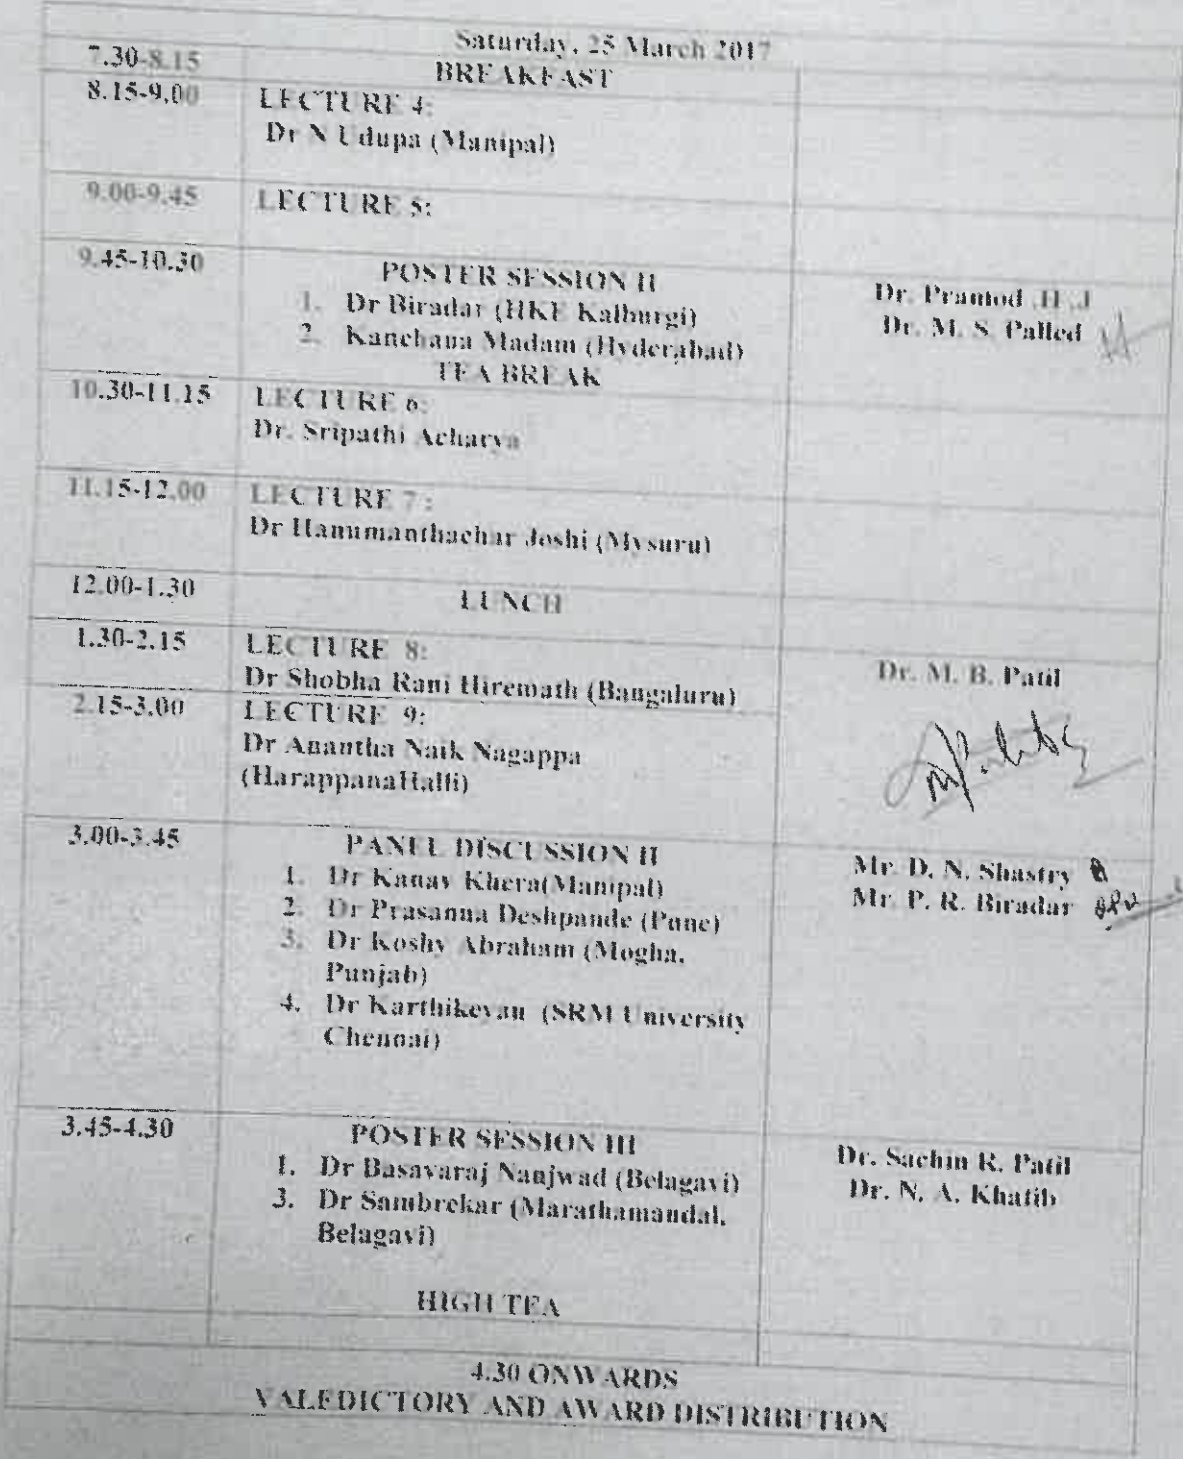 Saturday, 25 March 2017
7.30-8.15 BREAKFAST
8.15-9.00 LECTURE 4:
Dr N Udupa (Manipal)
9.00-9.45 LECTURE 5:
9.45-10.30 POSTER SESSION II
1. Dr Biradar (HKE Kalburgi) Dr. Pramod .H .J
2. Kanchana Madam (Hyderabad) Dr. M. S. Palled
TEA BREAK
10.30-11.15 LECTURE 6:
Dr. Sripathi Acharya
11.15-12.00 LECTURE 7 :
Dr Hanumanthachar Joshi (Mysuru)
12.00-1.30 LUNCH
1.30-2.15 LECTURE 8:
Dr Shobha Rani Hiremath (Bangaluru) Dr. M. B. Patil
2.15-3.00 LECTURE 9:
Dr Anantha Naik Nagappa
(HarappanaHalli)
3.00-3.45 PANEL DISCUSSION II
1. Dr Kanav Khera(Manipal) Mr. D. N. Shastry
2. Dr Prasanna Deshpande (Pune) Mr. P. R. Biradar
3. Dr Koshy Abraham (Mogha,
Punjab)
4. Dr Karthikeyan (SRM University
Chennai)
3.45-4.30 POSTER SESSION III
1. Dr Basavaraj Nanjwad (Belagavi) Dr. Sachin R. Patil
3. Dr Sambrekar (Marathamandal, Dr. N. A. Khatib
Belagavi)
HIGH TEA
4.30 ONWARDS
VALEDICTORY AND AWARD DISTRIBUTION